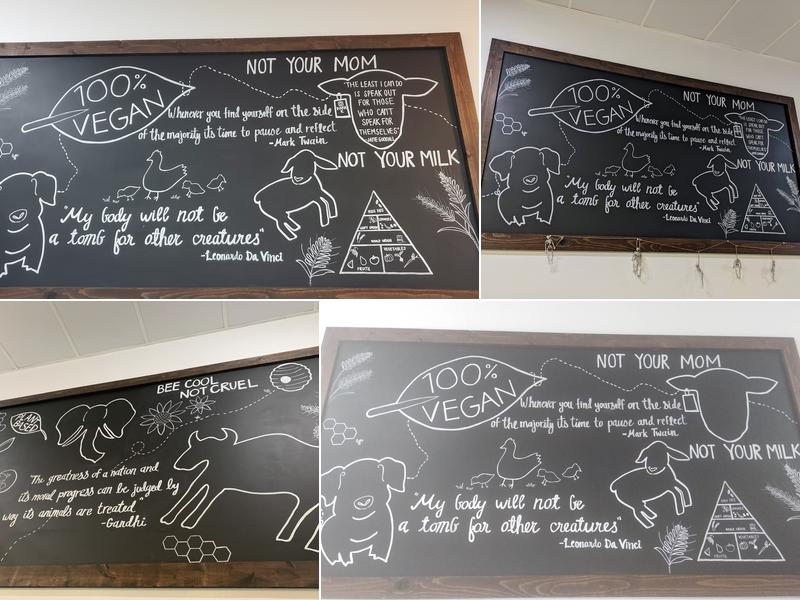 NOT YOUR MOM
100%
VEGAN
"THE LEAST I CAN DO
IS SPEAK OUT
FOR THOSE
WHO CAN'T
SPEAK FOR
THEMSELVES"
-JANE GOODALL
Whenever you find yourself on the side
of the majority its time to pause and reflect
-Mark Twain
NOT YOUR MILK
"My body will not be
a tomb for other creatures"
-Leonardo Da Vinci
WHOLE GRAINS
FRUITS
VEGETABLES
NOT YOUR MOM
100%
VEGAN
"THE LEAST I CAN DO
IS SPEAK OUT
FOR THOSE
WHO CAN'T
SPEAK FOR
THEMSELVES"
Whenever you find yourself on the side
of the majority its time to pause and reflect
-Mark Twain
NOT YOUR MILK
"My body will not be
a tomb for other creatures"
-Leonardo Da Vinci
BEE COOL
NOT CRUEL
PLANT
BASED
The greatness of a nation and
its moral progress can be judged by
way its animals are treated
-Gandhi
NOT YOUR MOM
100%
VEGAN
Whenever you find yourself on the side
of the majority its time to pause and reflect
-Mark Twain
NOT YOUR MILK
"My body will not be
a tomb for other creatures"
-Leonardo Da Vinci
WHOLE GRAINS
FRUITS
VEGETABLES